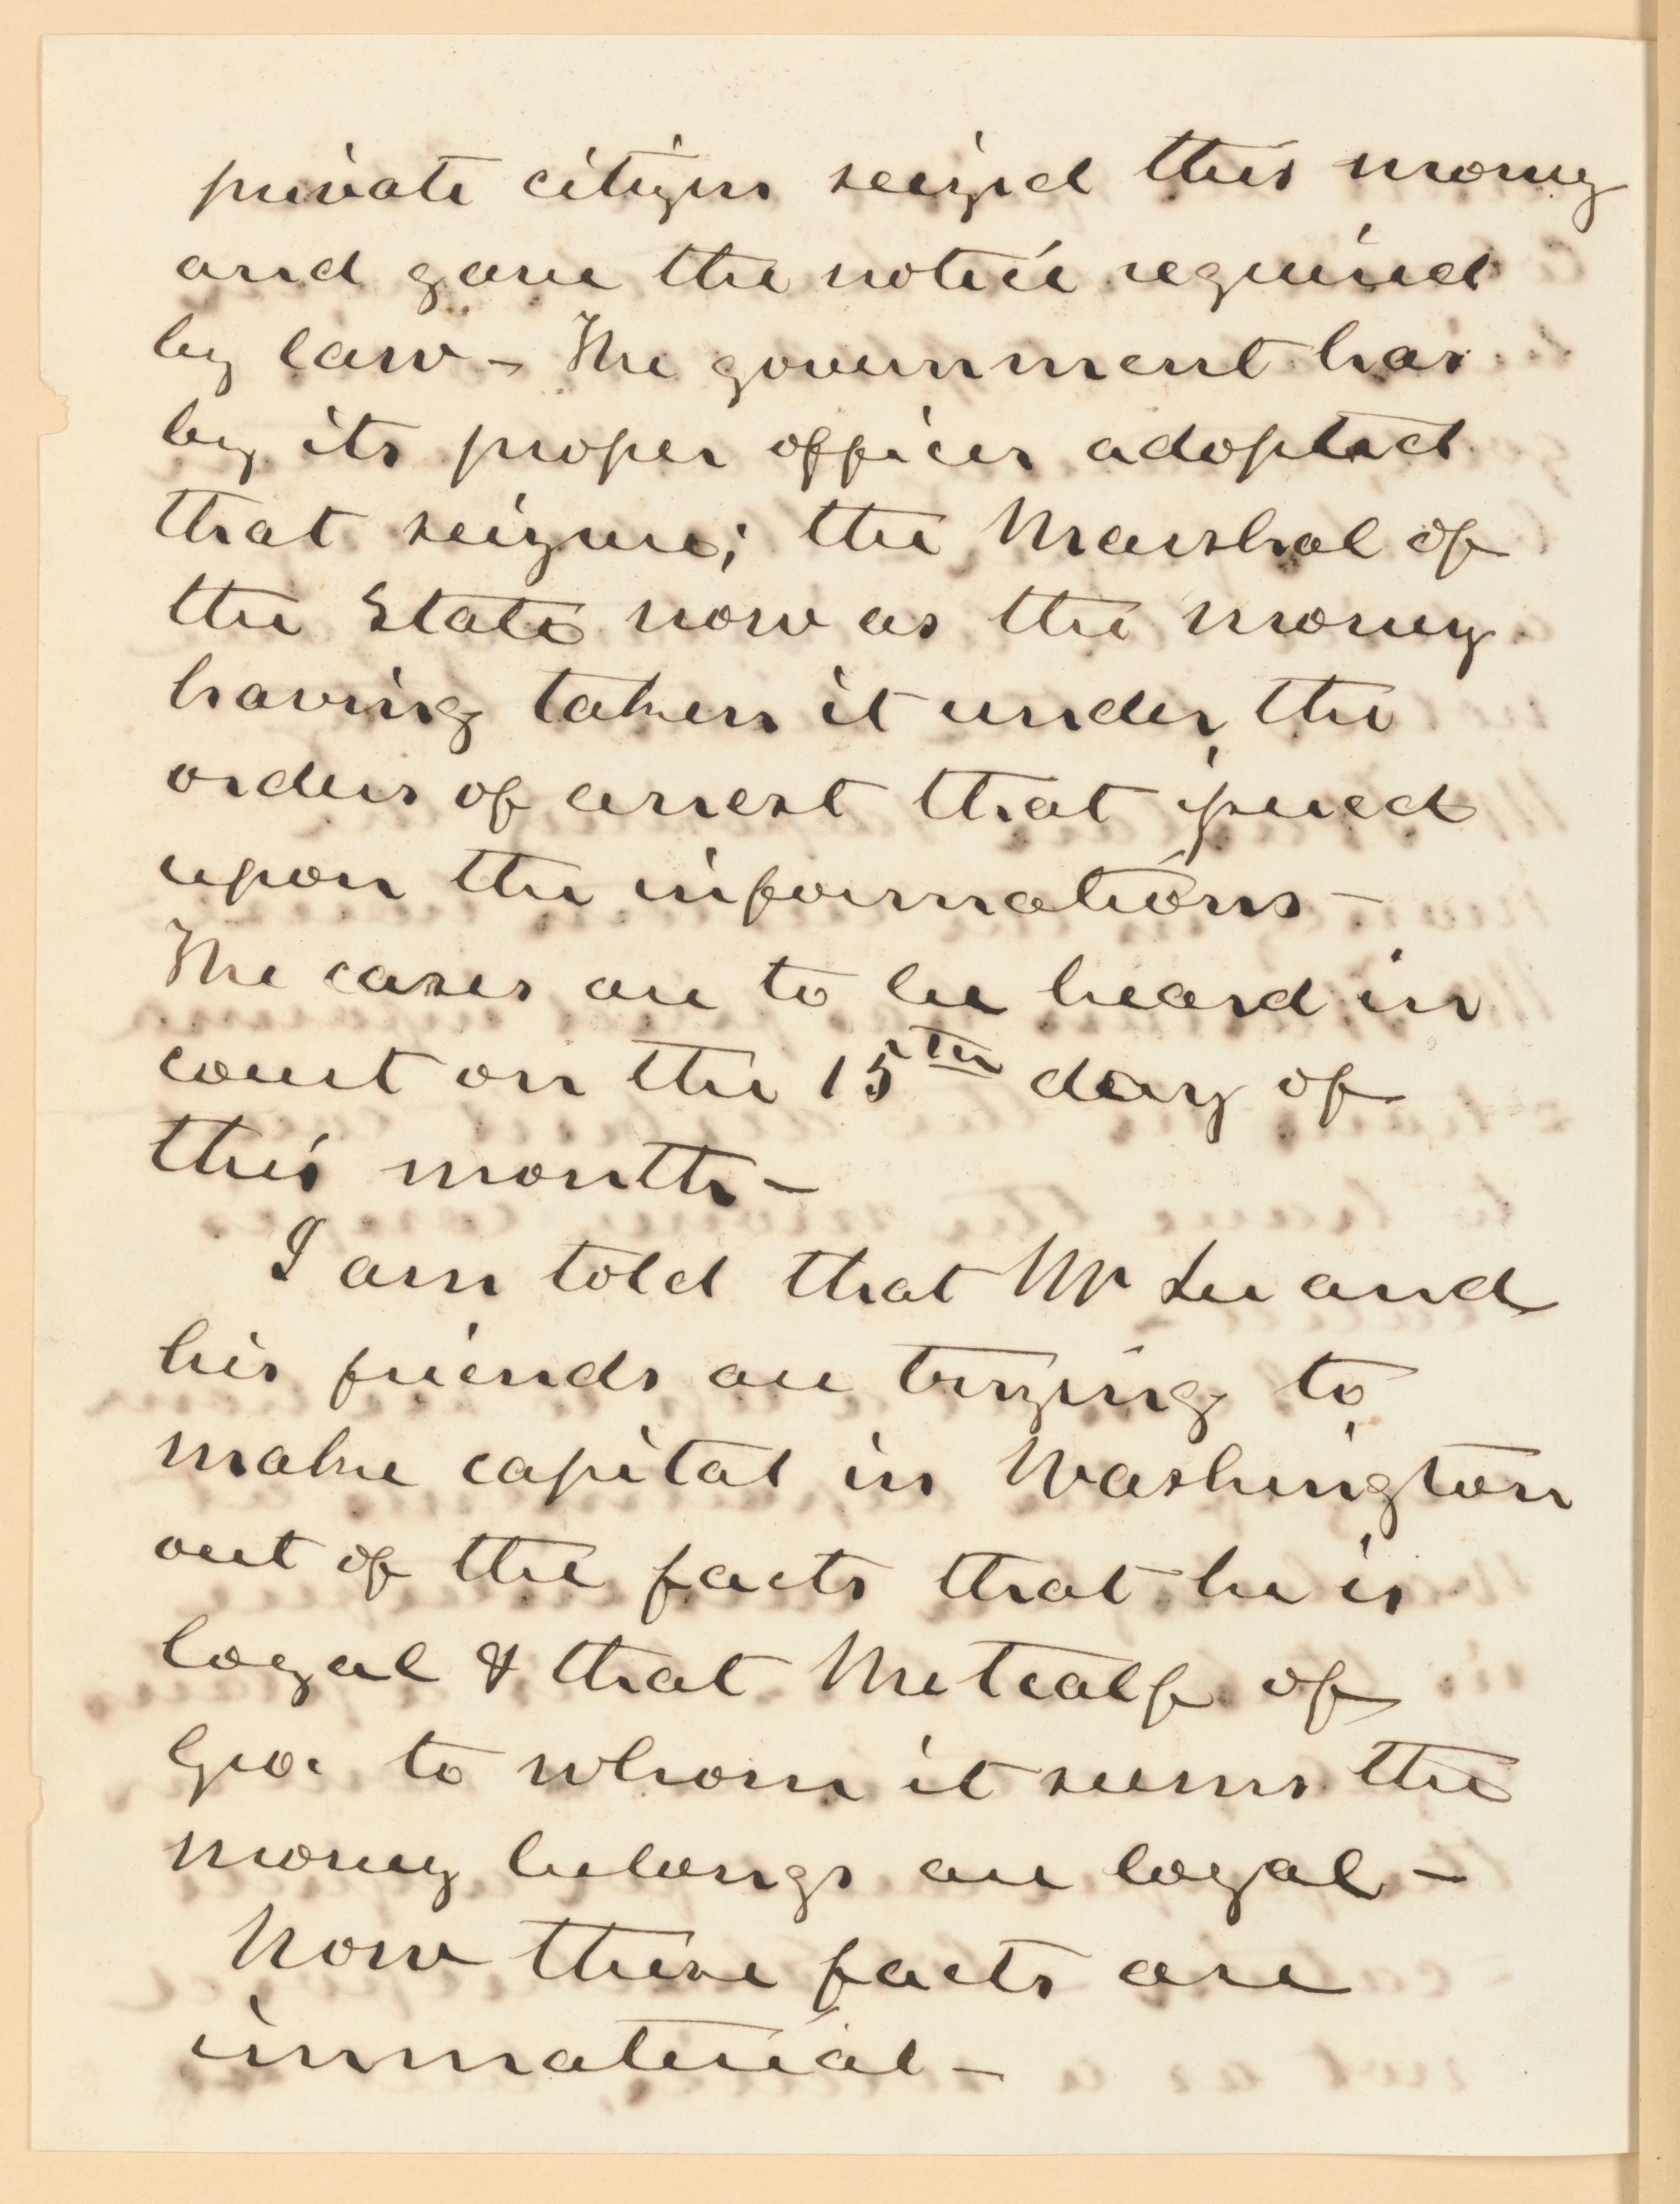 private citizen seized this money
and gave the notice required
by law – The government has
by its proper officer adopted
that seizure; the Marshal of
the State now as the money
having taken it under the
orders of arrest that issued
upon the informations –
The cases are to be heard in
court on the 15th day of
this month –
I am told that Mr Lee and
his friends are trying to
make capital in Washington
out of the facts that he is
loyal & that Metcalf of
Geo. to whom it seems the
money belongs are loyal –
Now these facts are
immaterial –